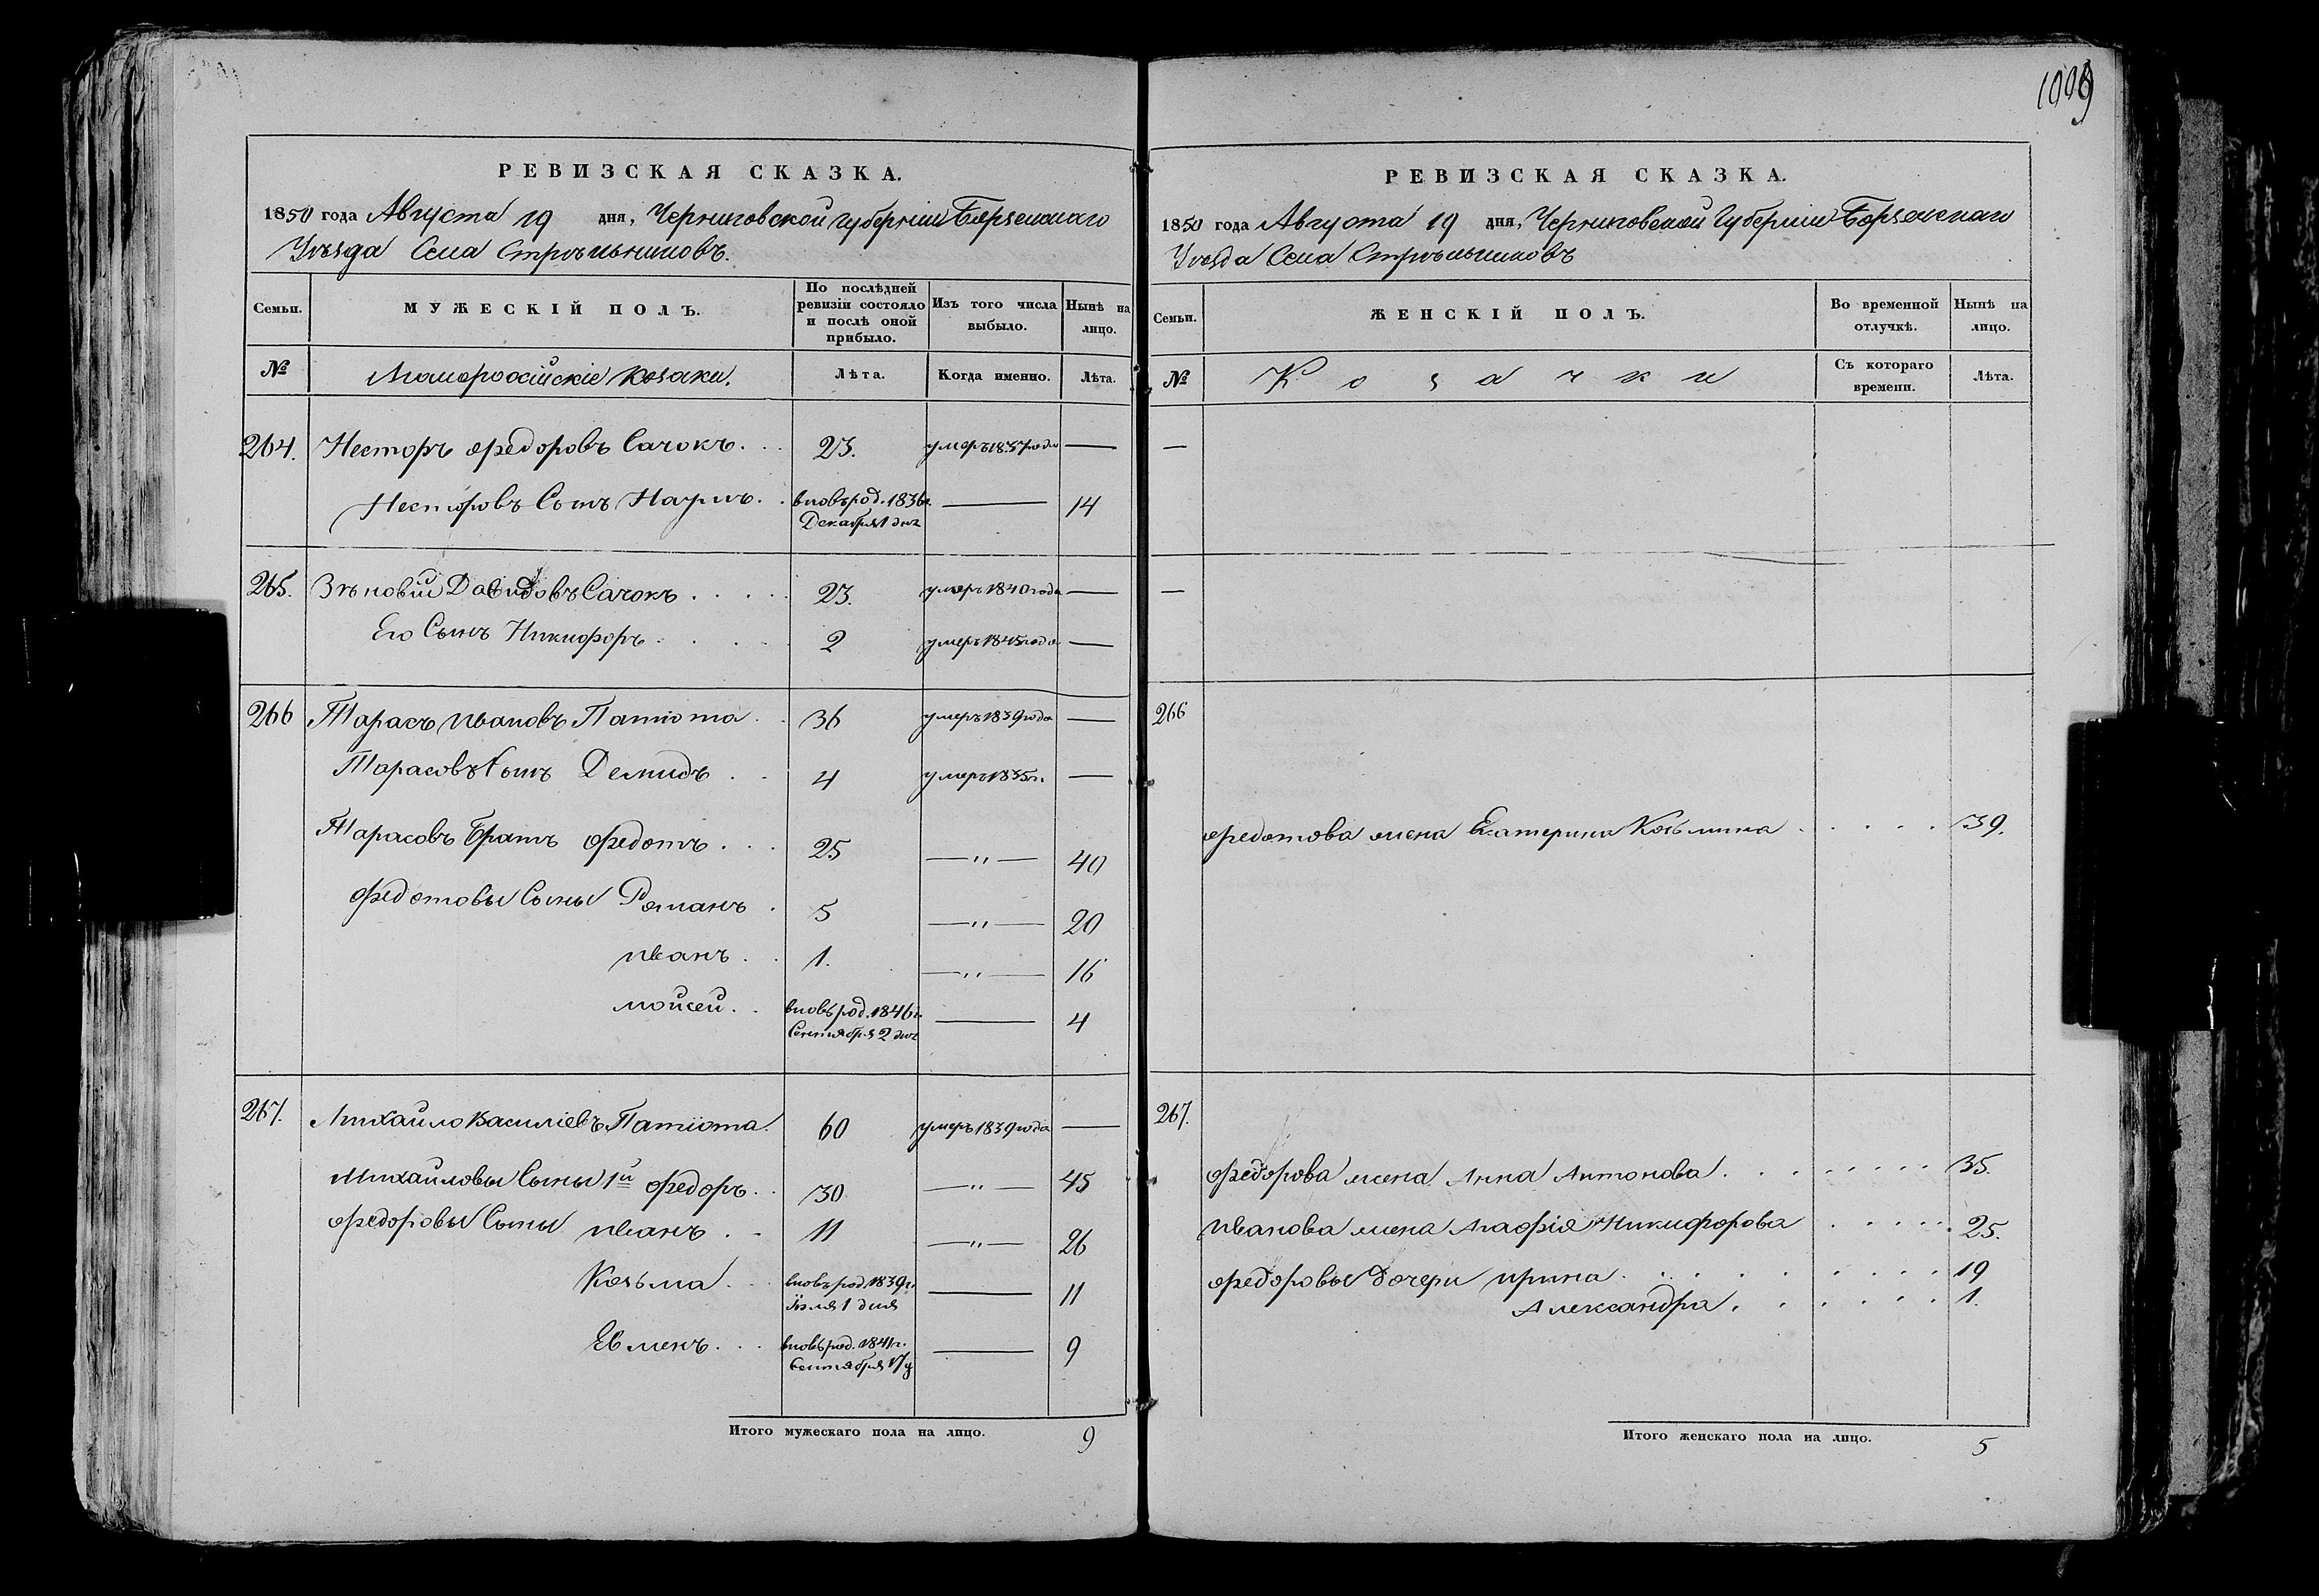 1009
РЕВИЗСКАЯ СКАЗКА.
1850 года Августа 19 дня, Черниговской Губерніи Борзенскаго
Уѣзда Села Стрѣльниковъ.
Семьи.
МУЖЕСКІЙ ПОЛЪ.
По послѣдней ревизіи состояло и послѣ оной прибыло.
Изъ того числа выбыло.
Нынѣ на лицо.
№
Малороссійскіе Козаки.
Лѣта.
Когда именно.
Лѣта.
264. Несторъ Федоровъ Сачокъ . . . 23. умеръ 1837 года —
Несторовъ Сынъ Наумъ . . вновь род. 1836 г. Декабря 1 дня — 14
265. Зѣновій Давидовъ Сачокъ . . . . . 23. умеръ 1840 года —
Его Сынъ Никифоръ . . . . 2 умеръ 1845 года —
266 Тарасъ Ивановъ Патіота . . 36 умеръ 1839 года —
Тарасовъ Сынъ Демидъ . . 4 умеръ 1835 г. —
Тарасовъ Братъ Федотъ . . . 25 —"— 40
Федотовы Сыны Романъ . 5 —"— 20
Иванъ . . 1. —"— 16
Мойсей . . вновь род. 1846 г. Сентября 2 дня — 4
267. Михайло Василіевъ Патіота. 60 умеръ 1839 года —
Михайловы Сыны 1й Федоръ . . 30 —"— 45
Федоровы Сыны Иванъ . . 11 —"— 26
Козьма . . вновь род. 1839 г. Іюля 1 дня — 11
Евменъ . . . вновь род. 1841 г. Сентября 17 д — 9
Итого мужескаго пола на лицо. 9
РЕВИЗСКАЯ СКАЗКА.
1850 года Августа 19 дня, Черниговской Губерніи Борзенскаго
Уѣзда Села Стрѣльниковъ
Семьи.
ЖЕНСКІЙ ПОЛЪ.
Во временной отлучкѣ.
Нынѣ на лицо.
№
Козачки
Съ котораго времени.
Лѣта.
—
—
266
Федотова жена Екатерина Козьмина . . . . . 39.
267.
Федорова жена Анна Антонова . . . . . . . . 35.
Иванова жена Агафія Никифорова . . . . . 25.
Федоровы дочери Ирина . . . . . . . . . 19
Александра . . . . . . 1.
Итого женскаго пола на лицо. 5